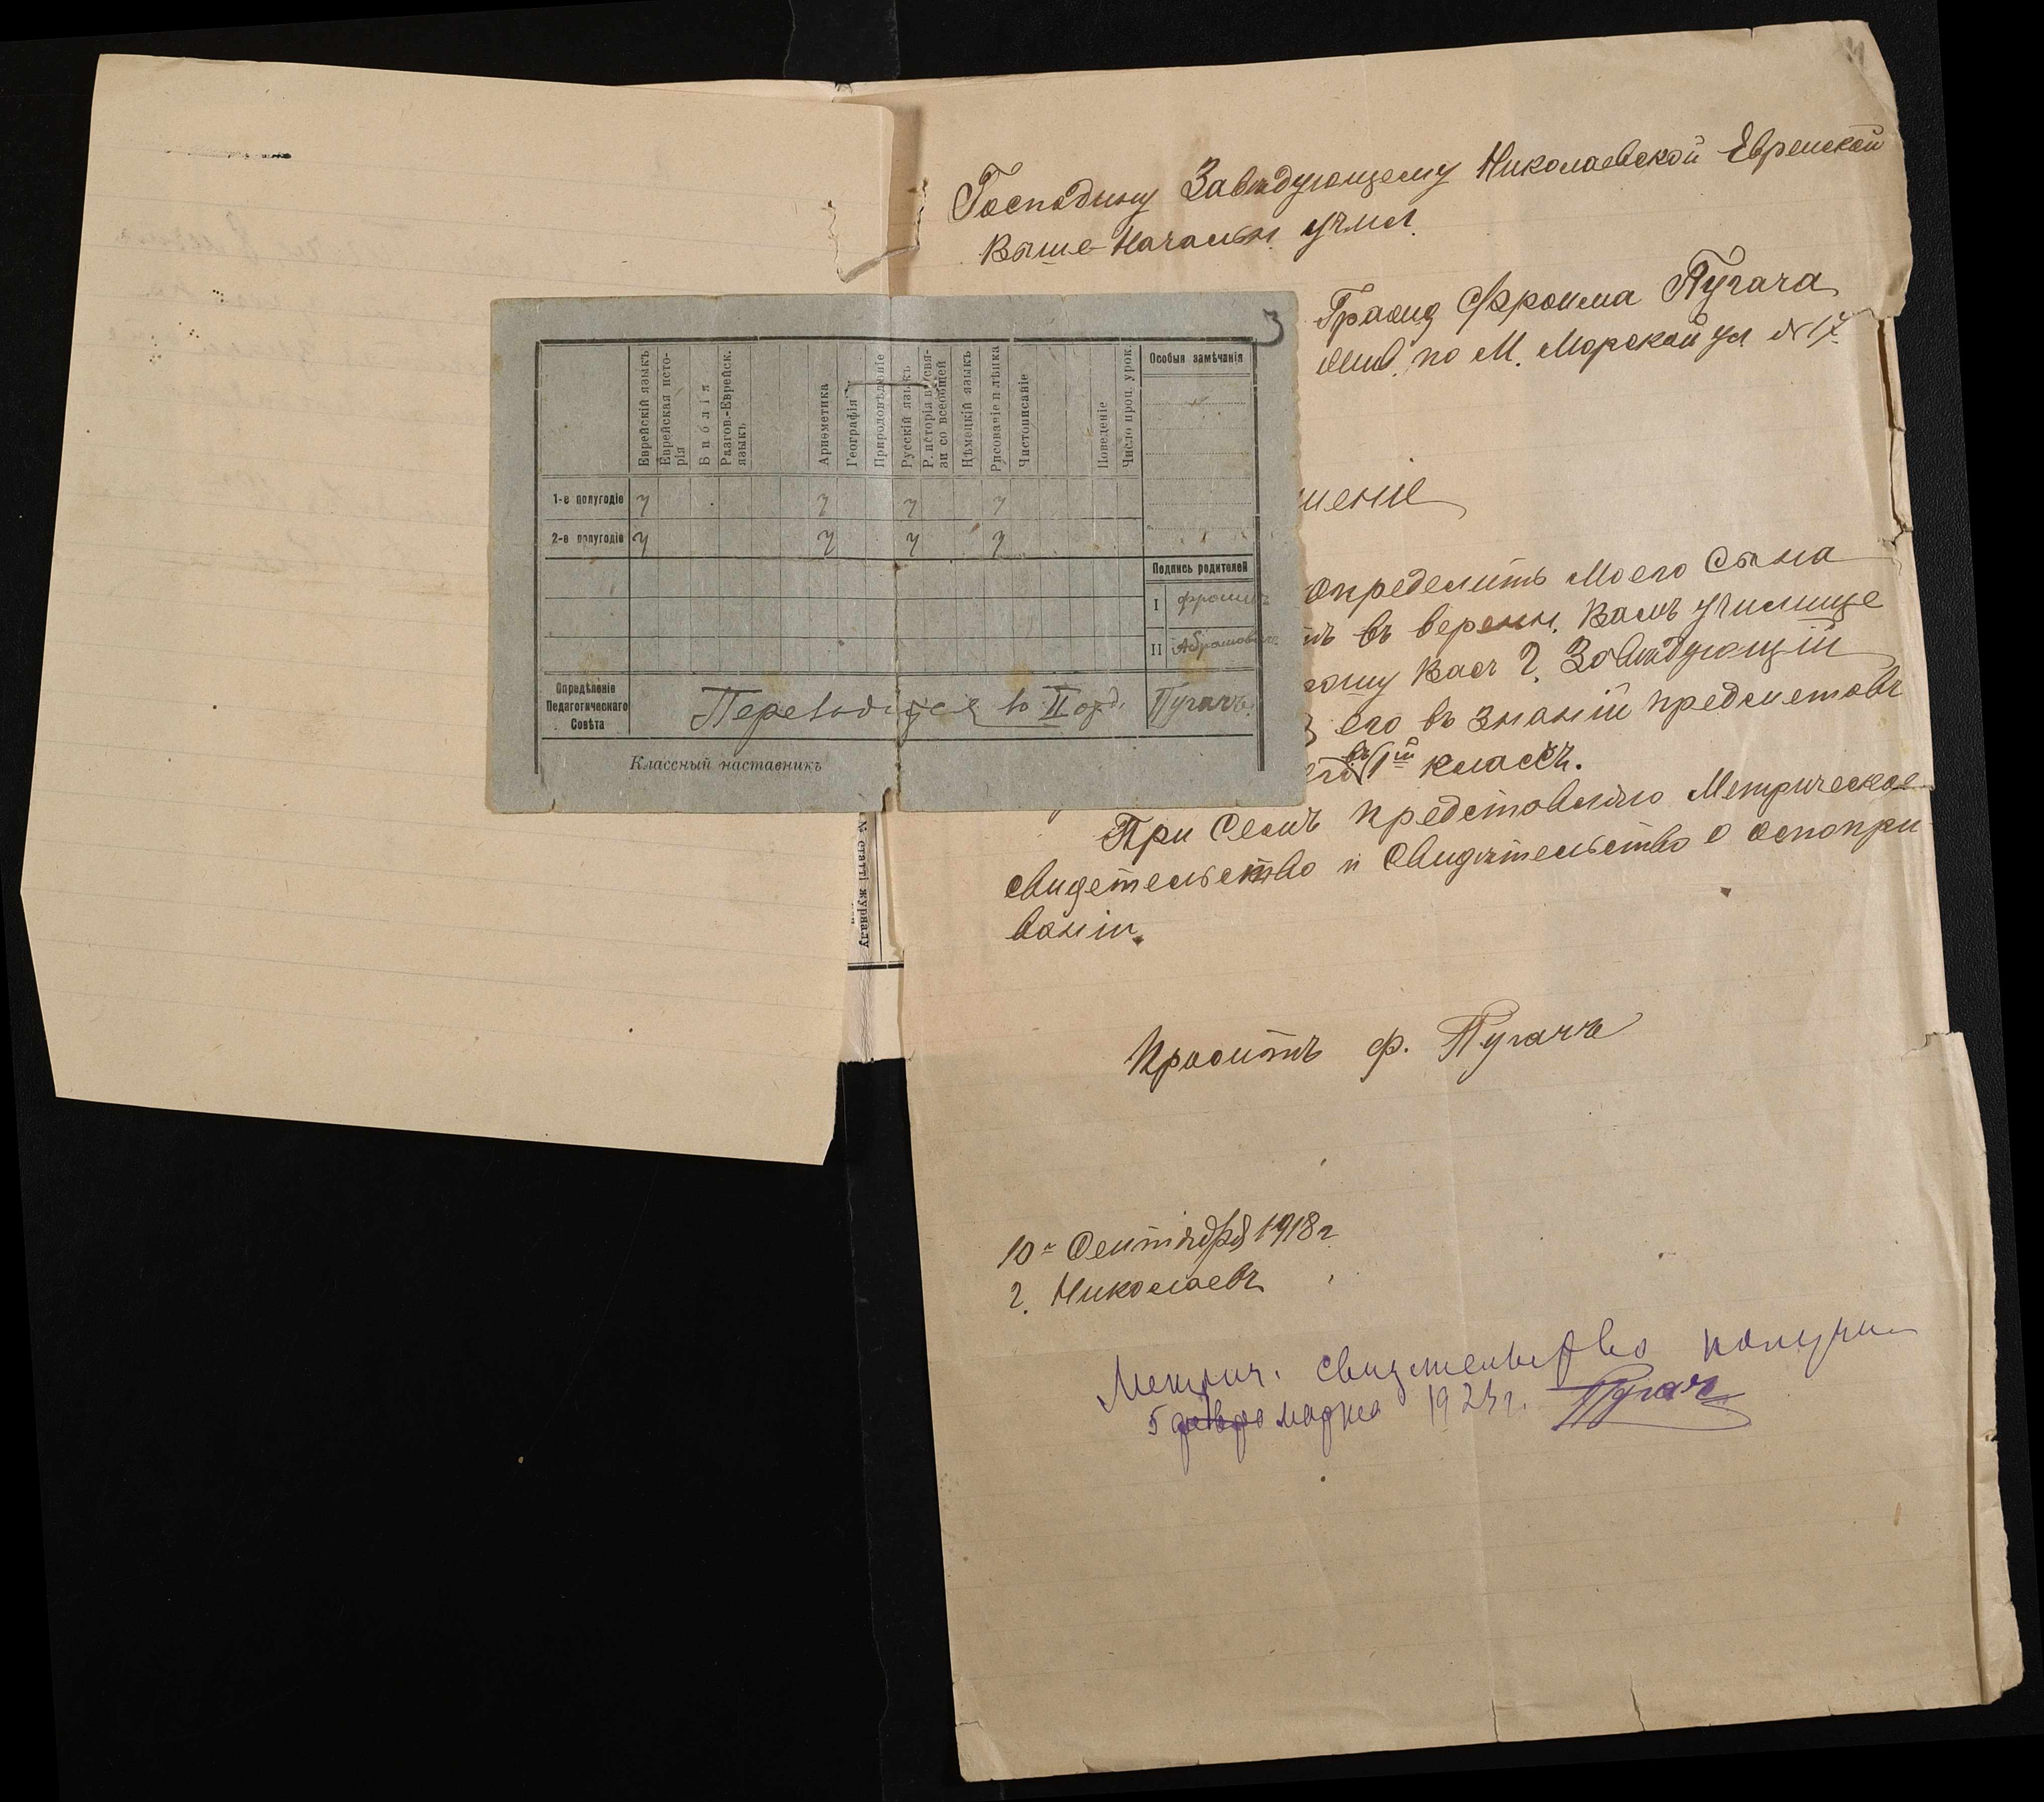 Господину Заведующему Николаевской Евреиской
Выше-Начальн. учил.
Гражд Фроима Пугача
жив. по М. Морской ул №17
шеніе
определить моего сына
въ веренн. Вамъ училище
Васъ Г. Заведующій
его въ знаніи предметовъ
въ 1й классъ.
При семъ представляю Метрическое
свидетельство и свидѣтельство о оспопри
ваніи.
Проситъ Ф. Пугачъ
10го Сентября 1918 г
г. Николаевъ
Метрич. свидетельство получил
5 марта 1923 г. Пугач
3
Еврейскій языкъ
Еврейская исто-
рія
Библія
Разгов.-Еврейск.
языкъ
Ариѳметика
Географія
Природовѣдѣніе
Русскій языкъ
Р. исторія въ свя-
зи со всеобщей
Нѣмецкій языкъ
Рисованіе и лѣпка
Чистописаніе
Поведеніе
Число проп. урок.
Особыя замѣчанія
1-е полугодіе у у у у
2-е полугодіе у у у у
Подпись родителей
I Фроимъ
II Абрамович
Опредѣленіе
Педагогическаго
Совѣта
Переводится во II отд.
Пугачъ
Классный наставникъ
№ статті журналу